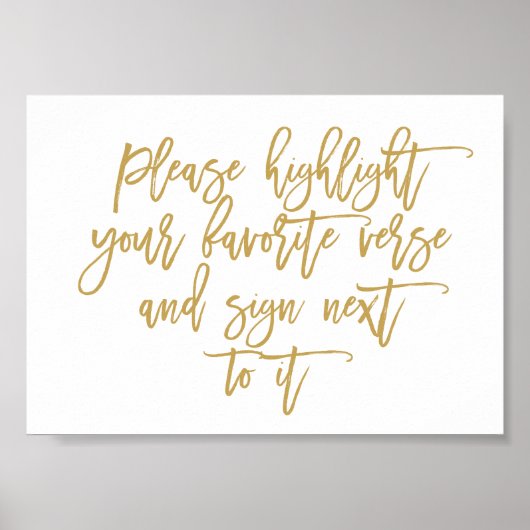 Please highlight
your favorite verse
and sign next
to it